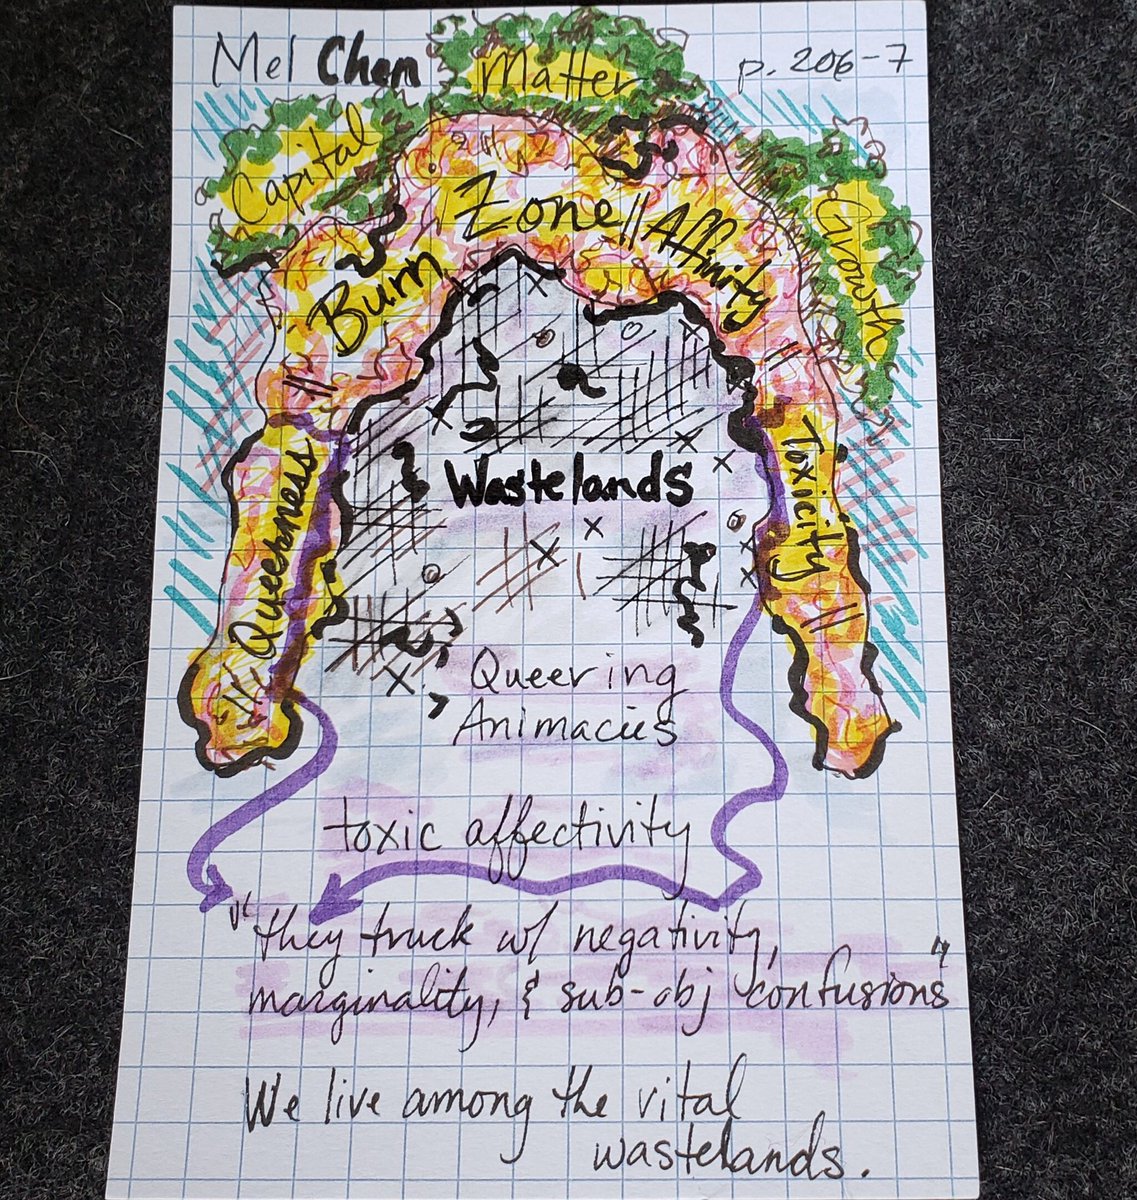 Mel Chen
p. 206-7
Matter
Capital
Growth
Burn Zone // Affinity
Queerness
Toxicity
Wastelands
Queering
Animacies
toxic affectivity
"they truck w/ negativity,
marginality, & sub-obj confusions"
We live among the vital
wastelands.